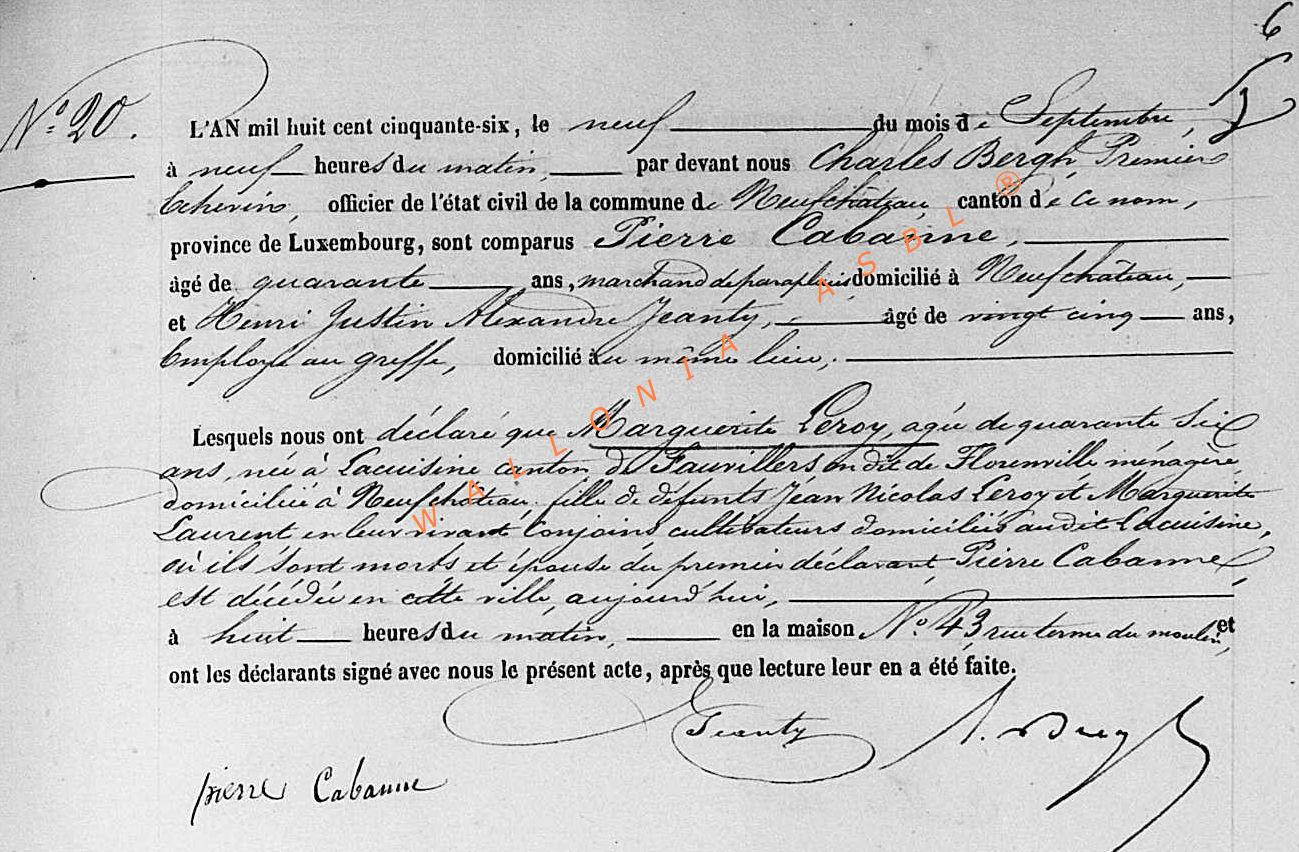 6
N° 20.
L'AN mil huit cent cinquante-six, le neuf du mois de Septembre,
à neuf heures du matin, par devant nous Charles Bergh, Premier
Echevin, officier de l'état civil de la commune de Neufchâteau, canton de ce nom,
province de Luxembourg, sont comparus Pierre Cabanne,
âgé de quarante ans, marchand de parapluies domicilié à Neufchâteau,
et Henri Justin Alexandre Jeanty, âgé de vingt cinq ans,
Employé au greffe, domicilié au même lieu,
Lesquels nous ont déclaré que Marguerite Leroy, agée de quarante six
ans, née à Lacuisine canton de Fauvillers on dit de Florenville ménagère,
domiciliée à Neufchâteau fille de défunts Jean Nicolas Leroy et Marguerite
Laurent en leur vivant Conjoins cultivateurs domiciliés audit Lacuisine,
où ils sont morts et épouse du premier déclarant, Pierre Cabanne,
est décédée en cette ville, aujourd'hui,
à huit heures du matin, en la maison N° 43 rue terme du moulin, et
ont les déclarants signé avec nous le présent acte, après que lecture leur en a été faite.
Jeanty
pierre Cabanne
WALLONIA ASBL ®